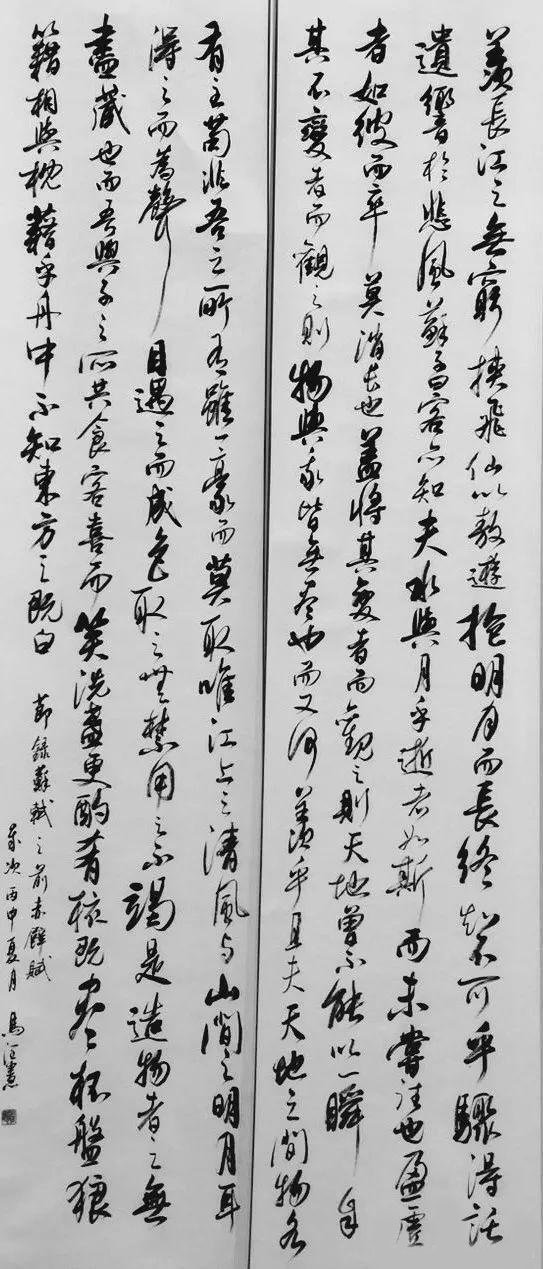 羨長江之無窮挾飛仙以敖遊抱明月而長終知不可乎驟得託
遺響於悲風蘇子曰客亦知夫水與月乎逝者如斯而未嘗往也盈虛
者如彼而卒莫消長也蓋將其變者而觀之則天地曾不能以一瞬自
其不變者而觀之則物與我皆無盡也而又何羨乎且夫天地之間物各
有主苟非吾之所有雖一豪而莫取唯江上之清風与山間之明月耳
得之而為聲目遇之而成色取之無禁用之不竭是造物者之無
盡藏也而吾與子之所共食客喜而笑洗盞更酌肴核既盡杯盤狼
籍相與枕藉乎舟中不知東方之既白
節錄蘇軾之前赤壁賦
歲次丙申夏月 馬